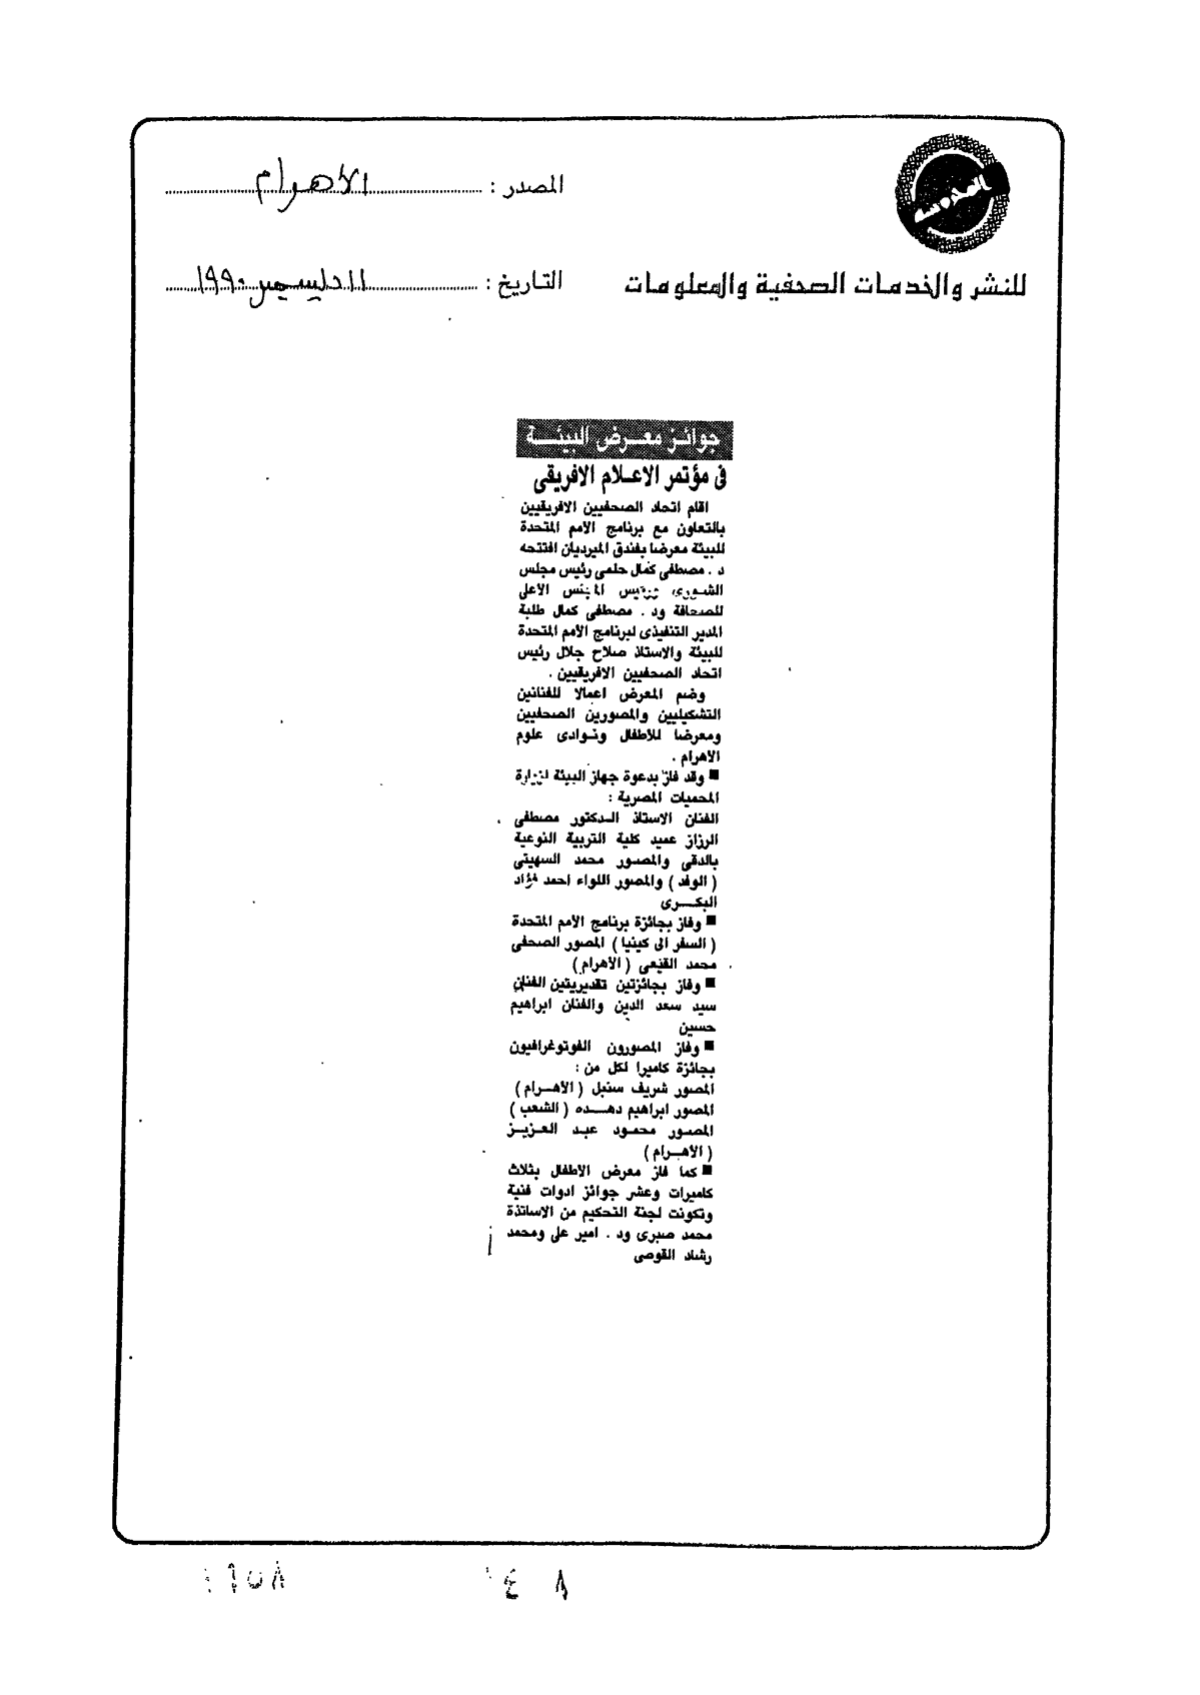 المحروسة
للنشر والخدمات الصحفية والمعلومات
المصدر : الأهرام
التاريخ : ١١ ديسمبر ١٩٩٠
جوائز معرض البيئة
فى مؤتمر الاعلام الافريقى
اقام اتحاد الصحفيين الافريقيين
بالتعاون مع برنامج الأمم المتحدة
للبيئة معرضا بفندق الميرديان افتتحه
د . مصطفى كمال حلمى رئيس مجلس
الشورى ورئيس المجلس الاعلى
للصحافة ود . مصطفى كمال طلبة
المدير التنفيذى لبرنامج الأمم المتحدة
للبيئة والاستاذ صلاح جلال رئيس
اتحاد الصحفيين الافريقيين .
وضم المعرض اعمالا للفنانين
التشكيليين والمصورين الصحفيين
ومعرضا للأطفال ونوادى علوم
الاهرام .
■ وقد فاز بدعوة جهاز البيئة لزيارة
المحميات المصرية :
الفنان الاستاذ الدكتور مصطفى
الرزاز عميد كلية التربية النوعية
بالدقى والمصور محمد السهيتى
( الوفد ) والمصور اللواء احمد فؤاد
البكرى
■ وفاز بجائزة برنامج الأمم المتحدة
( السفر الى كينيا ) المصور الصحفى
محمد القيعى ( الأهرام )
■ وفاز بجائزتين تقديريتين الفنان
سيد سعد الدين والفنان ابراهيم
حسين
■ وفاز المصورون الفوتوغرافيون
بجائزة كاميرا لكل من :
المصور شريف سنبل ( الأهرام )
المصور ابراهيم دهده ( الشعب )
المصور محمود عبد العزيز
( الأهرام )
■ كما فاز معرض الأطفال بثلاث
كاميرات وعشر جوائز ادوات فنية
وتكونت لجنة التحكيم من الاساتذة
محمد صبرى ود . امير على ومحمد
رشاد القوصى